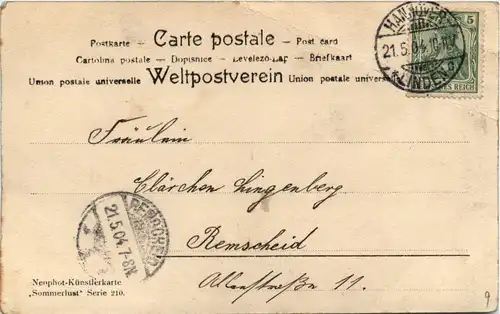 Postkarte — Carte postale — Post card
Cartolina postale — Dopisnice — Levelező-Lap — Briefkaart
Union postale universelle Weltpostverein Union postale universelle
HANNOVER
21.5.04
*LINDEN
5
Fräulein
Clärchen Lingenberg
Remscheid
Allenstraße 11.
REMSCHEID
21.5.04.7-8N.
Neophot-Künstlerkarte
„Sommerlust" Serie 210.
9